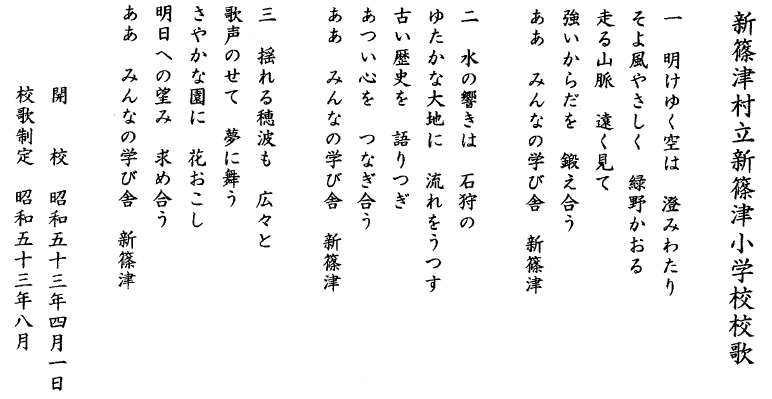 新篠津村立新篠津小学校校歌
一　明けゆく空は　澄みわたり
そよ風やさしく　緑野かおる
走る山脈　遠く見て
強いからだを　鍛え合う
ああ　みんなの学び舎　新篠津
二　水の響きは　石狩の
ゆたかな大地に　流れをうつす
古い歴史を　語りつぎ
あつい心を　つなぎ合う
ああ　みんなの学び舎　新篠津
三　揺れる穂波も　広々と
歌声のせて　夢に舞う
さやかな園に　花おこし
明日への望み　求め合う
ああ　みんなの学び舎　新篠津
開　　校　昭和五十三年四月一日
校歌制定　昭和五十三年八月